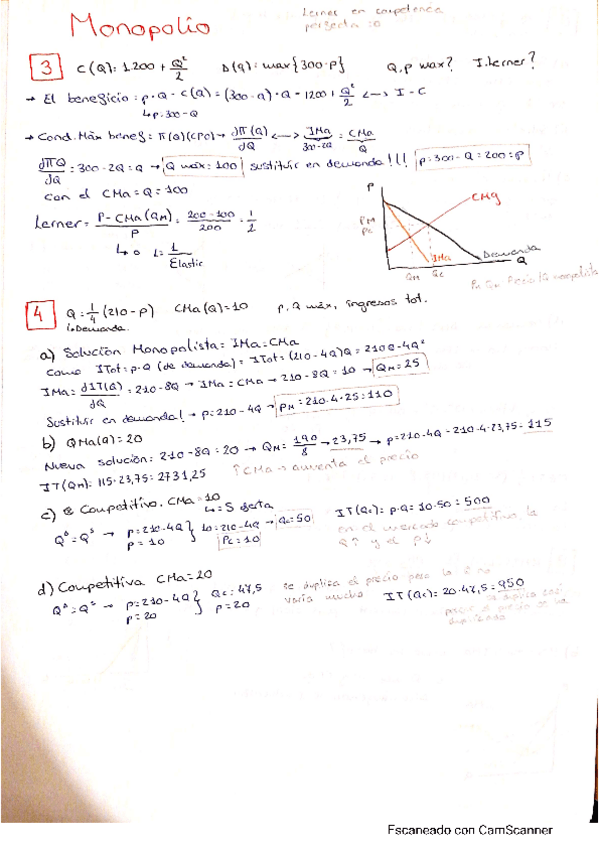 Lerner en competencia
perfecta :0
Monopolio
3 C(Q): 1.200 + Q²/2 D(q): max{300-p} Q, p max? I. Lerner?
→ El beneficio: p·Q - C(Q) = (300-Q)·Q - 1200 + Q²/2 <--> I - C
↳ p: 300-Q
→ Cond. Máx benef: π(Q)(CPO) → dπ(Q)/dQ <--> IMa/300-2Q = CMa/Q
dπQ/dQ = 300-2Q = Q → Q máx: 100 sustituir en demanda!!! p: 300-Q = 200 = p
con el CMa = Q = 100
Lerner = P - CMa(QM)/P = 200-100/200 = 1/2
↳ o L = 1/Elastic
P
CMg
PM
Pc
IMa
Demanda
QM Qc Q
PM QM Precio/Q monopolista
4 Q = 1/4 (210-p) CMa(Q) = 10 p, Q máx, ingresos tot.
↳ Demanda.
a) Solución Monopolista = IMa = CMa
como ITot = p·Q (de demanda) = ITot = (210-4Q)Q = 210Q-4Q²
IMa = dIT(Q)/dQ = 210-8Q → IMa = CMa → 210-8Q = 10 → QM = 25
Sustituir en demanda! → p = 210-4Q → PM = 210-4·25 = 110
b) QMa(Q) = 20
Nueva solución: 210-8Q = 20 → QM = 190/8 → 23,75 → p = 210-4Q - 210-4·23,75 = 115
IT(QM): 115·23,75: 2731,25 ↑CMa → aumenta el precio
c) Competitivo. CMa = 10
↳ = S oferta
Qᴰ = Qˢ → p = 210-4Q p = 10 } 10 = 210-4Q → Qc = 50 Pc = 10
IT(Qc) = p·Q = 10·50 = 500
en el mercado competitivo la
Q↑ y el p↓
d) Competitiva CMa = 20
Qᴰ = Qˢ → p = 210-4Q p = 20 } Qc = 47,5 p = 20
se duplica el precio pero la Q no
varía mucho
IT(Qc) = 20·47,5 = 950
se duplica casi
porque el precio se ha
duplicado
Escaneado con CamScanner